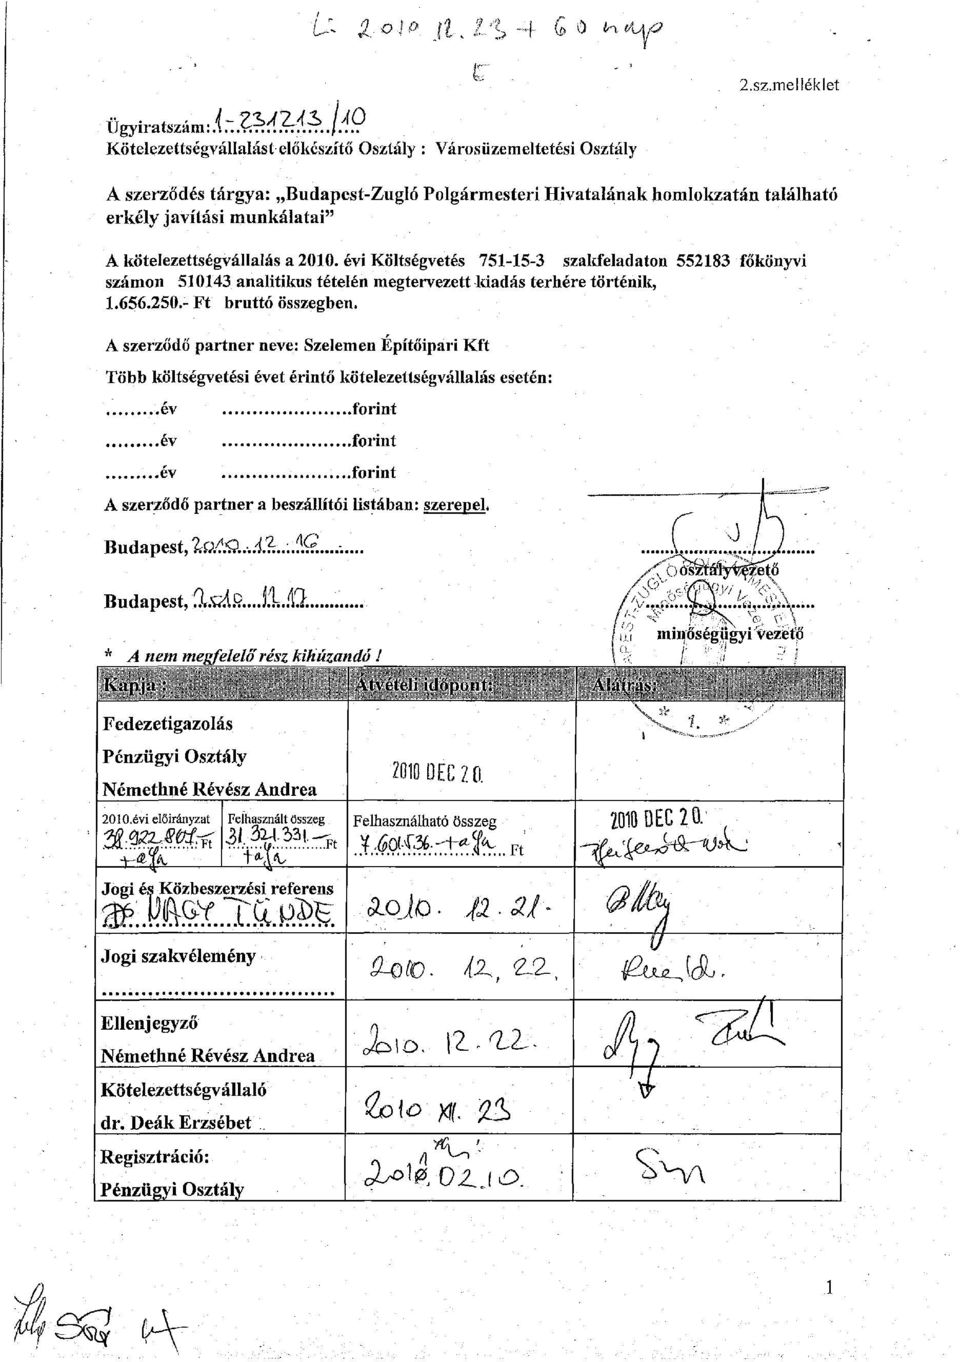 L: 2010 12. 23 + 60 nap
E
2.sz.melléklet
Ügyiratszám: 1-231213/10
Kötelezettségvállalást előkészítő Osztály : Városüzemeltetési Osztály
A szerződés tárgya: „Budapest-Zugló Polgármesteri Hivatalának homlokzatán található
erkély javítási munkálatai”
A kötelezettségvállalás a 2010. évi Költségvetés 751-15-3 szakfeladaton 552183 főkönyvi
számon 510143 analitikus tételén megtervezett kiadás terhére történik,
1.656.250.- Ft bruttó összegben.
A szerződő partner neve: Szelemen Építőipari Kft
Több költségvetési évet érintő kötelezettségvállalás esetén:
.........év ......................forint
.........év ......................forint
.........év ......................forint
A szerződő partner a beszállítói listában: szerepel.
Budapest, 2010. 12. 16
osztályvezető
Budapest, 2010. 12. 17
minőségügyi vezető
* A nem megfelelő rész kihúzandó !
Kapja : Átvételi időpont: Aláírás:
1. *
Fedezetigazolás
Pénzügyi Osztály
Némethné Révész Andrea
2010 DEC 20.
2010.évi előirányzat Felhasznált összeg Felhasználható összeg
38.922.867.- Ft 31.321.331.- Ft 7.601.536.- + áfa Ft
+ áfa + áfa
2010 DEC 20.
Jogi és Közbeszerzési referens
NAGY TÜNDE 2010. 12. 21.
Jogi szakvélemény 2010. 12. 22.
Ellenjegyző
Némethné Révész Andrea 2010. 12. 22.
Kötelezettségvállaló
dr. Deák Erzsébet 2010 XII. 23
Regisztráció:
Pénzügyi Osztály 02.10.
1